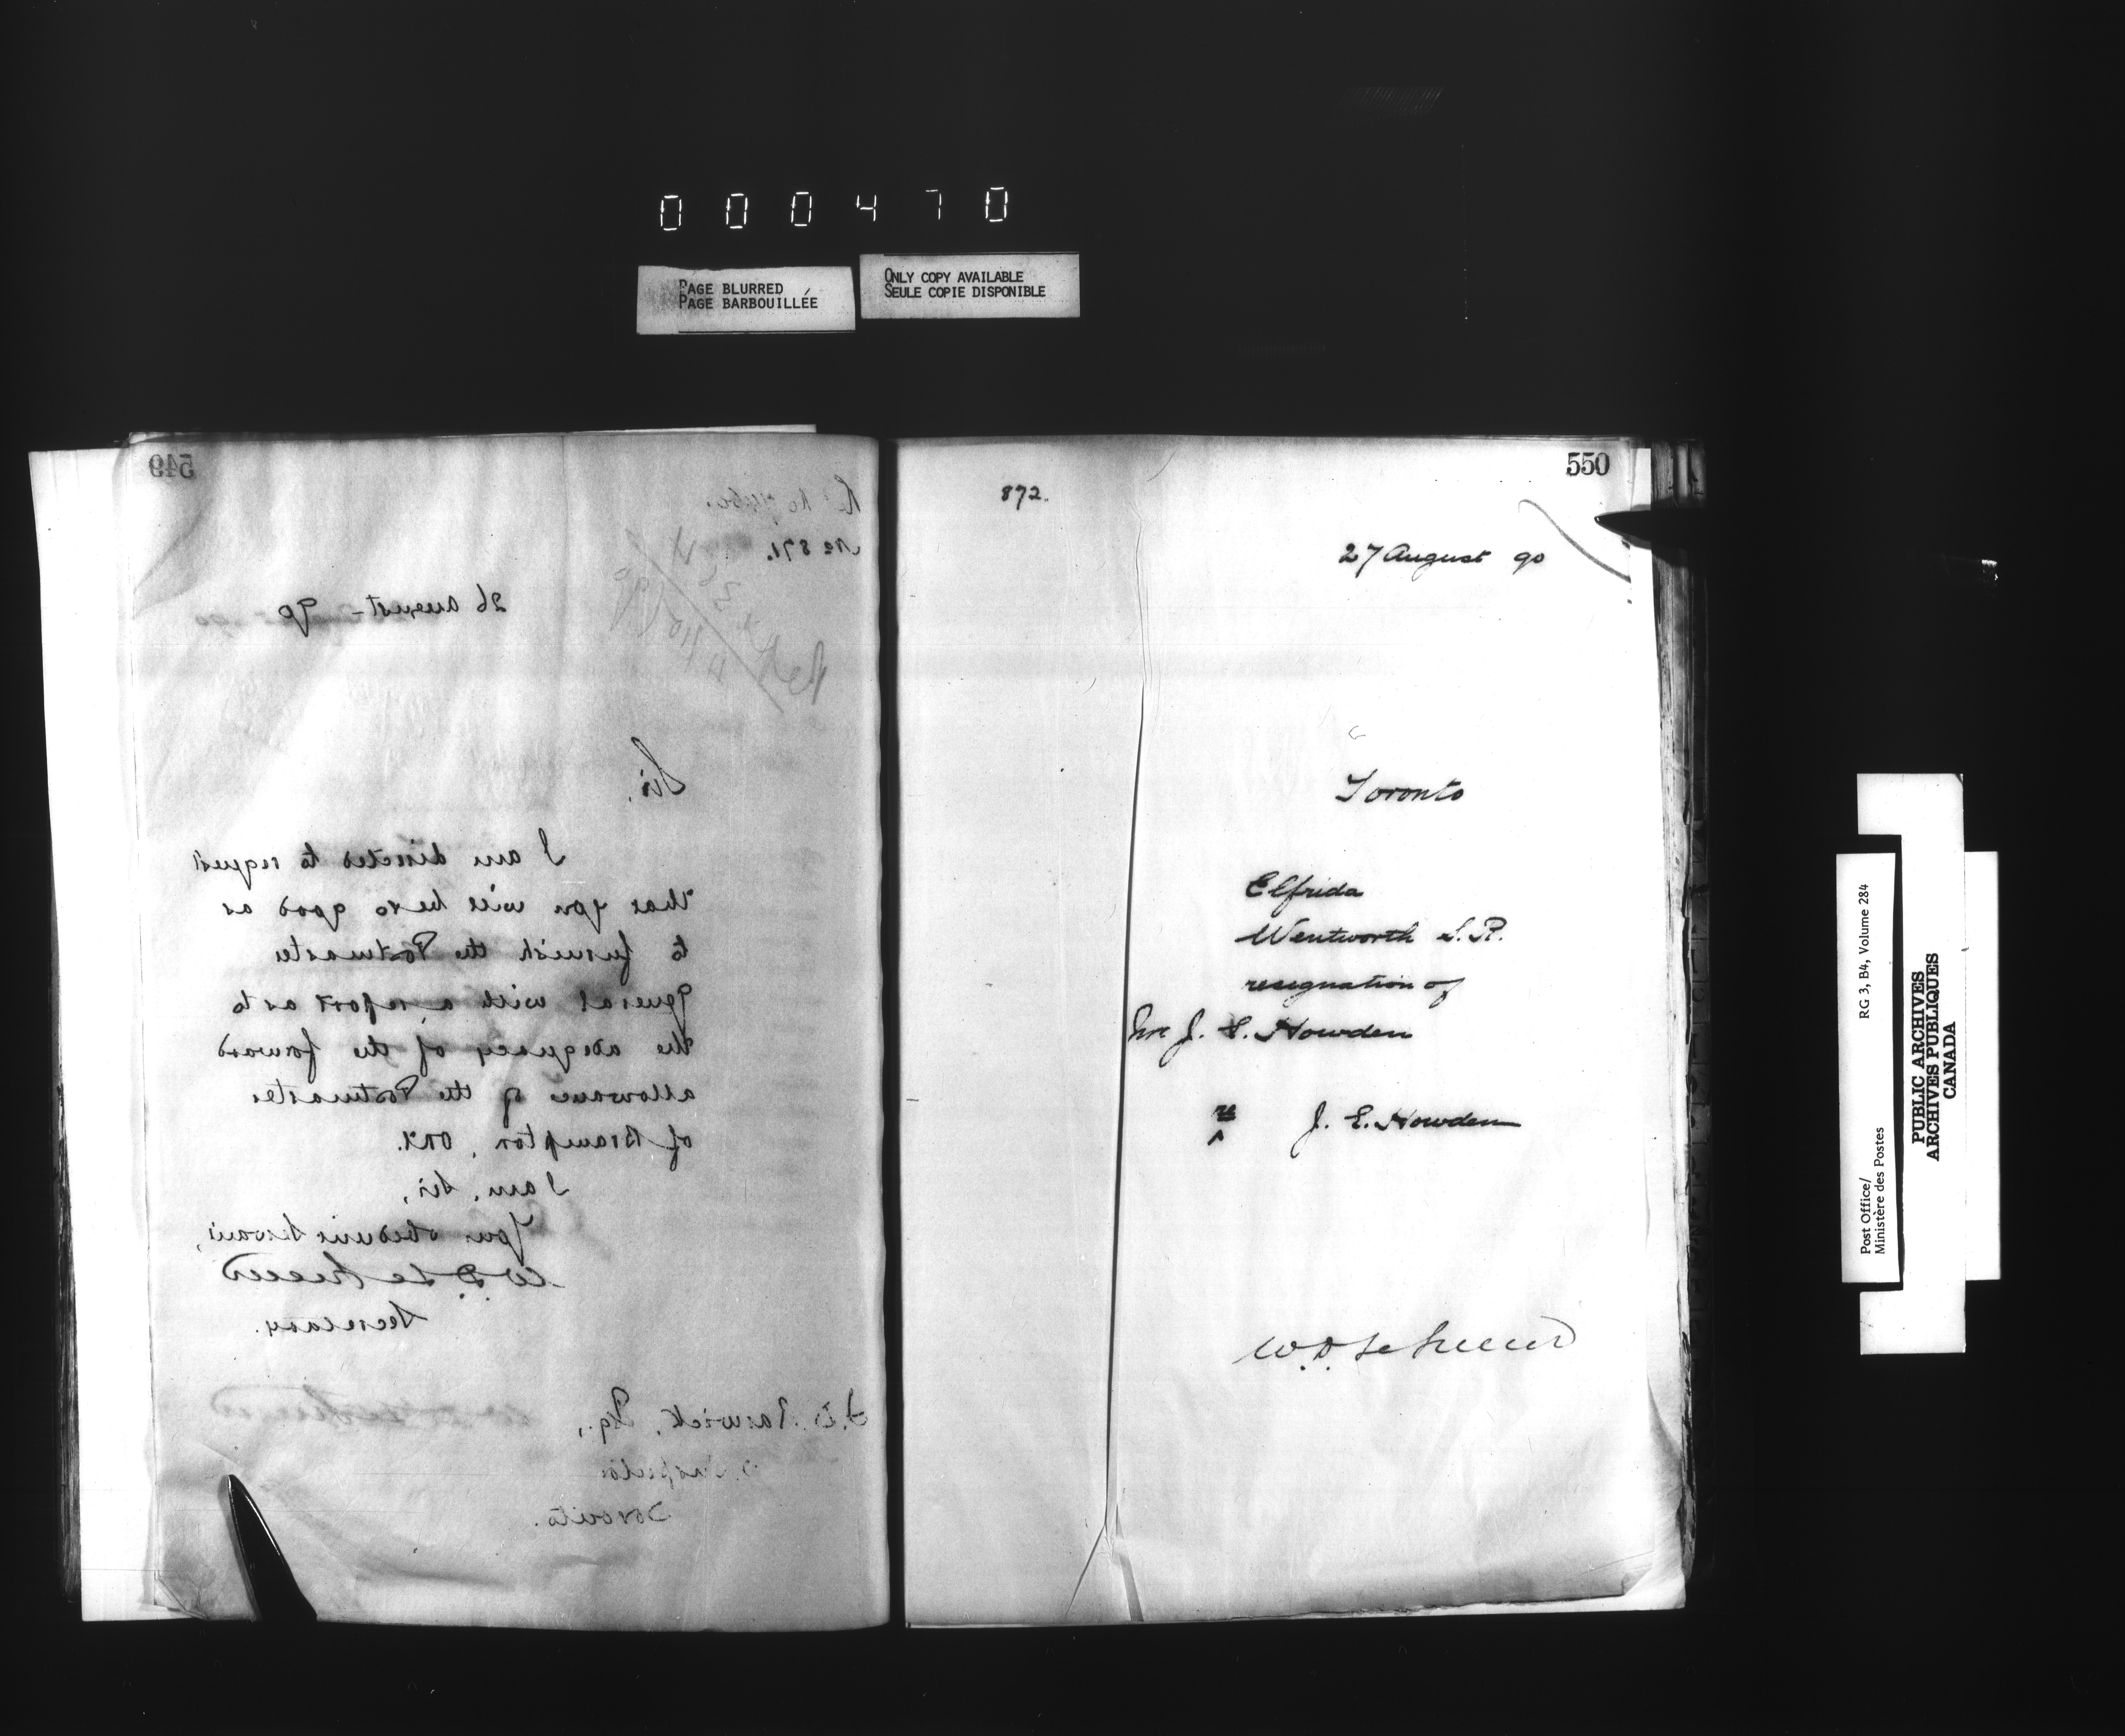 000470
PAGE BLURRED
PAGE BARBOUILLÉE
ONLY COPY AVAILABLE
SEULE COPIE DISPONIBLE
549
No 871.
26 August - 90
Sir,
I am directed to request
that you will be so good as
to furnish the Postmaster
General with a report as to
the adequacy of the forward
allowance of the Postmaster
of Brampton, Ont.
I am, Sir,
Your obedient Servant,
W. D. Le Sueur
Secretary.
Barwick, Esq.,
P.O. Inspector
Toronto.
550
872.
27 August 90
Toronto
Elfrida
Wentworth S. R.
resignation of
Mr J. E. Howden
J. E. Howden
W. D. Le Sueur
Post Office/
Ministère des Postes
RG 3, B4, Volume 284
PUBLIC ARCHIVES
ARCHIVES PUBLIQUES
CANADA